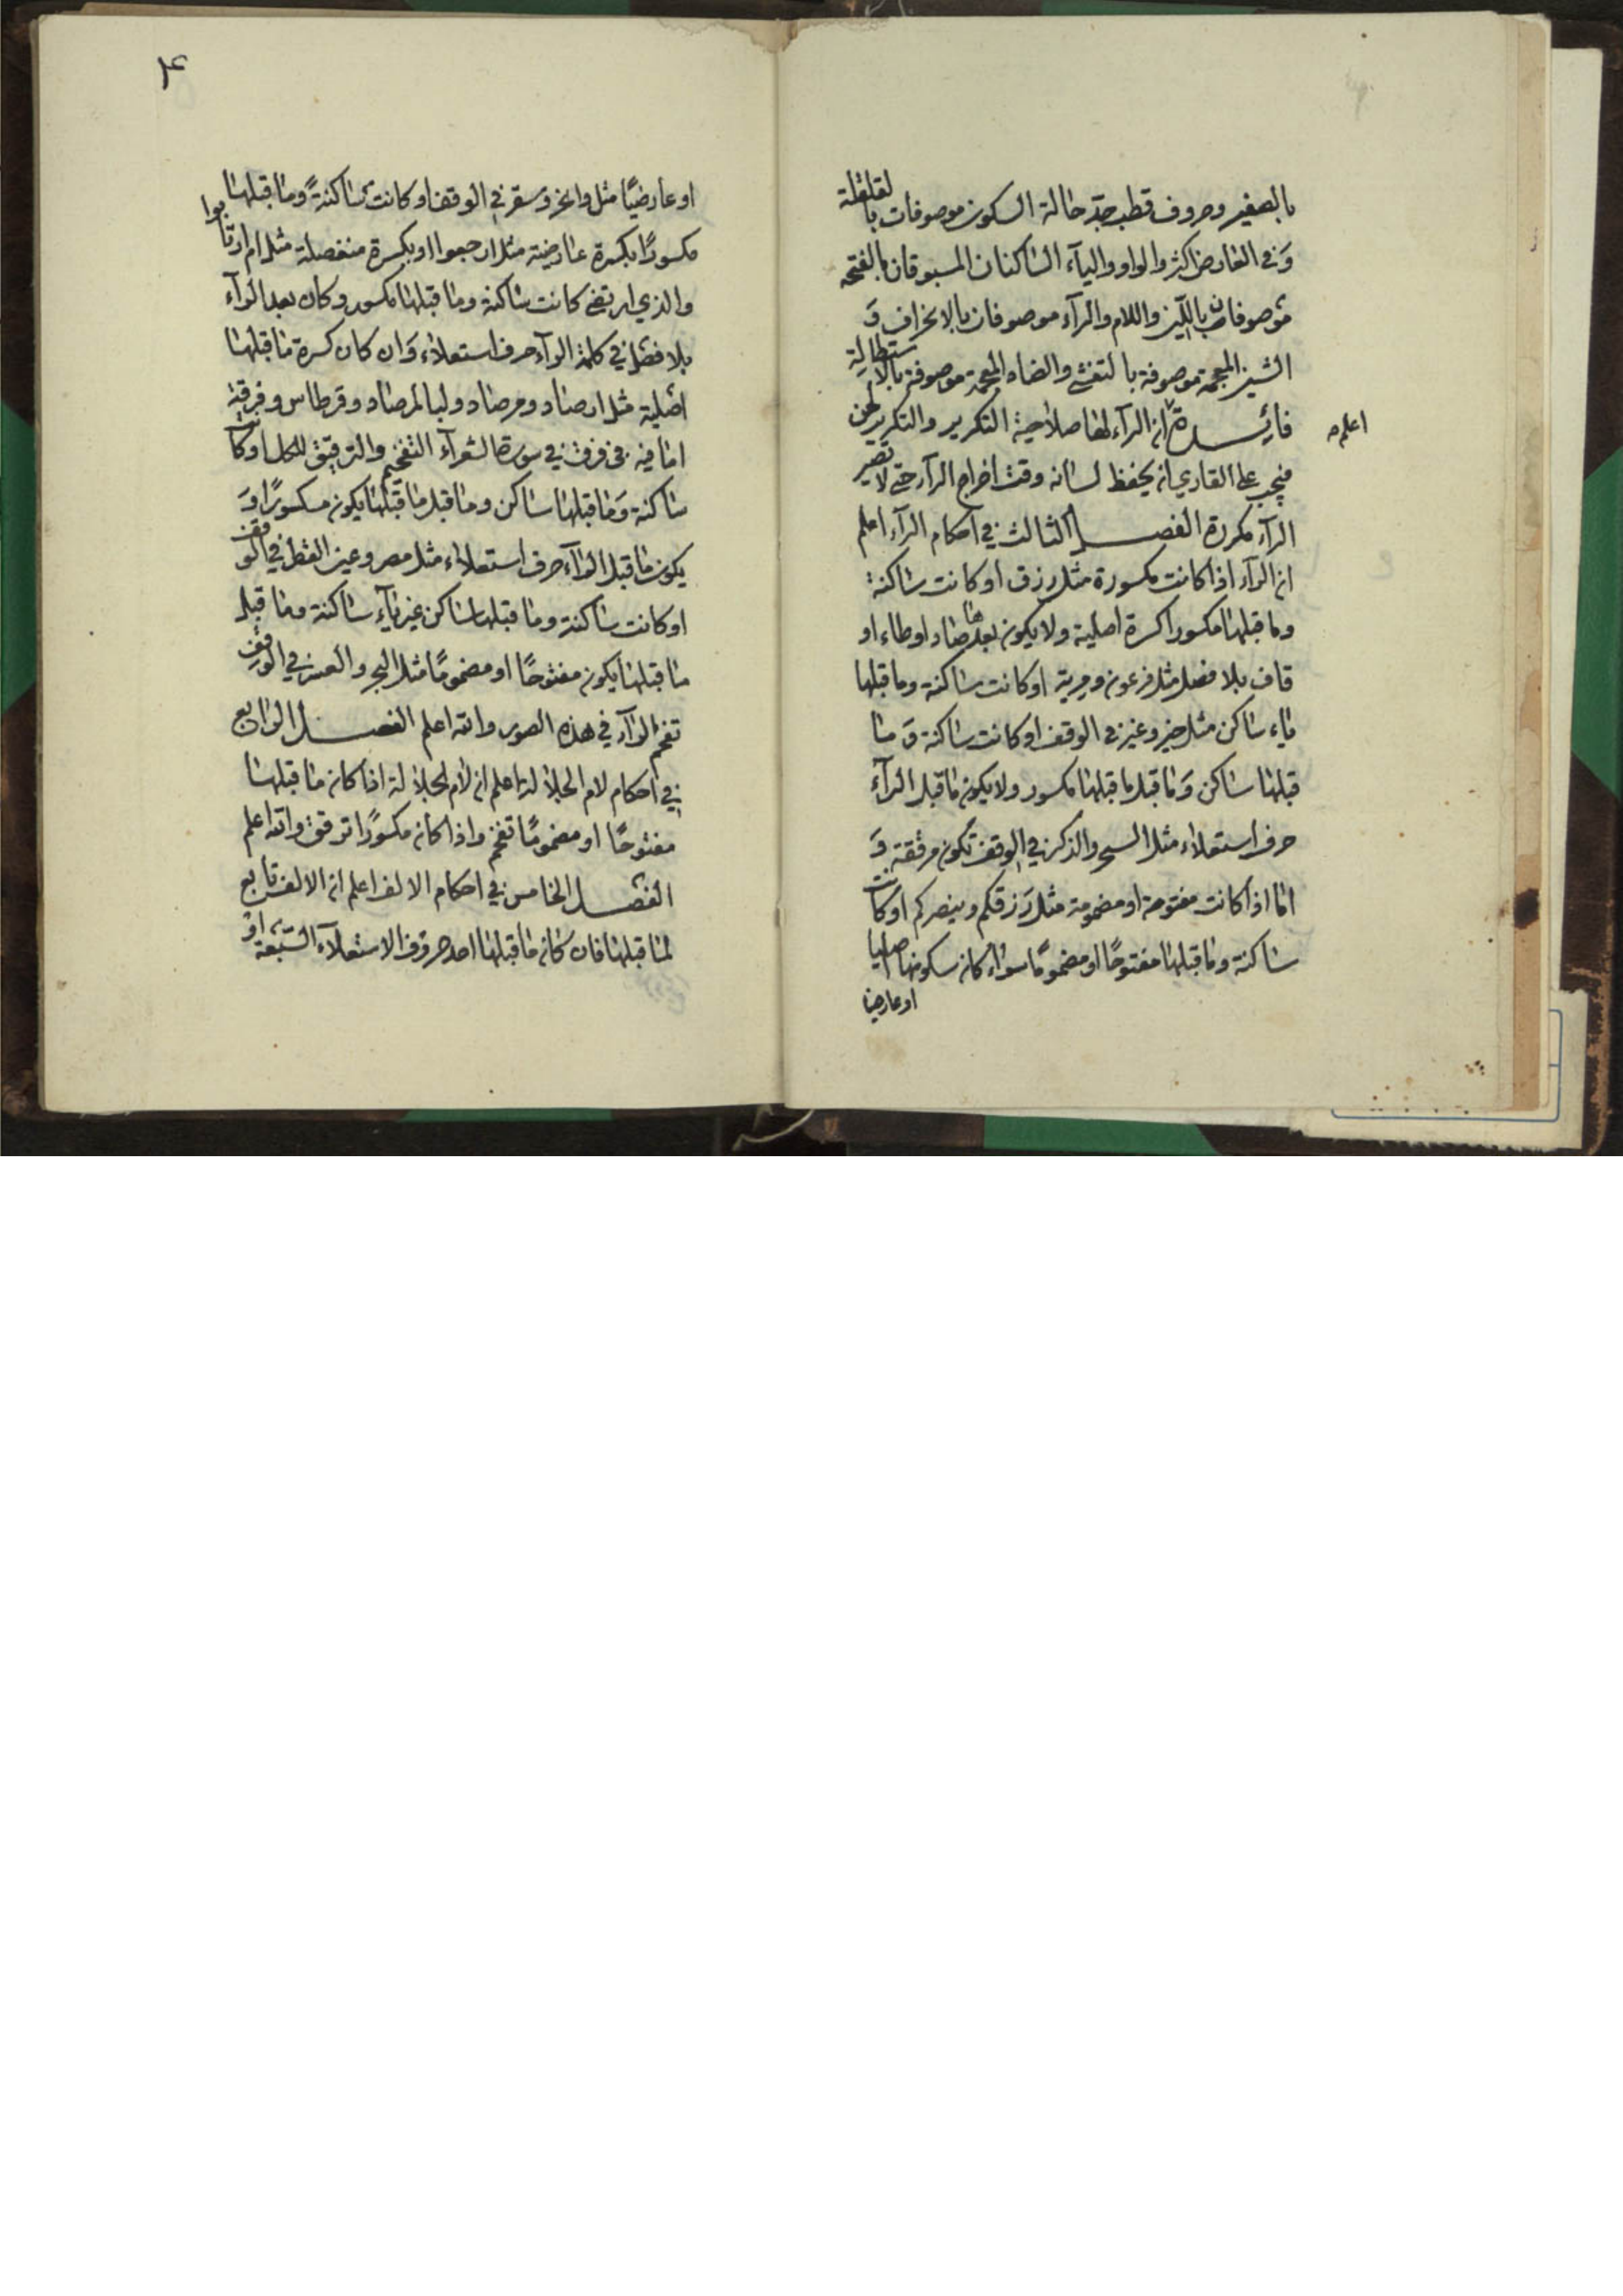 بالصغير وحروف قطب جد حالة السكون موصوفات بالقلقلة
وَفي العارض اكثر والواو واليآء الساكنان المسبوقان بالفتحه
موصوفان باللّين واللام والرآء موصوفان بالانحراف وَ
الشين المعجمة موصوفة بالتفشي والضاد المعجمة موصوفة بالاستطالة
فائدة ان الرآء لها صلاحية التكرير والتكرير لحن
اعلم
فيجب على القاري ان يحفظ لسانه وقت اخراج الرآء حتى لا تصير
الرآء مكررة الفصل الثالث في احكام الرآء اعلم
ان الرآء اذا كانت مكسورة مثل رزق او كانت ساكنة
وما قبلها مكسورا كسرة اصلية ولا يكون بعدها صاد او طاء او
قاف بلا فصل مثل فرعون ومرية او كانت ساكنة وما قبلها
ياء ساكن مثل خير وغير في الوقف او كانت ساكنة وَ ما
قبلها ساكن وَما قبل ما قبلها مكسور ولا يكون ما قبل الرآء
حرف استعلاء مثل السحر والذكر في الوقف تكون مرققة وَ
اما اذا كانت مفتوحة او مضمومة مثل رَزقكم وينصركم او كانت
ساكنة وما قبلها مفتوحًا او مضمومًا سواء كان سكونها اصليا
او عارضيا
۴
او عارضيًا مثل وانحر وَسقر في الوقف او كانت ساكنةً وما قبلها
مكسورًا بكسرة عارضية مثل ارجعوا او بكسرة منفصلة مثل ام ارتابوا
والذي ارتضى كانت ساكنة وما قبلها مكسور وكان بعد الرآء
بلا فصل في كلمة الرآء حرف استعلاء وَان كان كسرة ما قبلها
اصلية مثل ارصاد ومرصاد ولبالمرصاد وقرطاس وفرقة
اما فيه ففي فرق في سورة الشعرآء التفخيم والترقيق للكل او كا
ساكنة وَما قبلها ساكن وما قبل ما قبلها يكون مكسورًا وَ
يكون ما قبل الرآء حرف استعلاء مثل مصر وعين القطر في الوقف
او كانت ساكنة وما قبلها ساكن غير يآء ساكنة وما قبل
ما قبلها يكون مفتوحًا او مضمومًا مثل البحر والعسر في الوقف
تفخم الرآء في هذه الصور والله اعلم الفصل الرابع
في احكام لام الجلالة اعلم ان لام الجلالة اذا كان ما قبلها
مفتوحًا او مضمومًا تفخم واذا كان مكسورًا ترقق والله اعلم
الفصل الخامس في احكام الالف اعلم ان الالف تابع
لما قبلها فان كان ما قبلها احد حروف الاستعلآء السّبعة اوْ